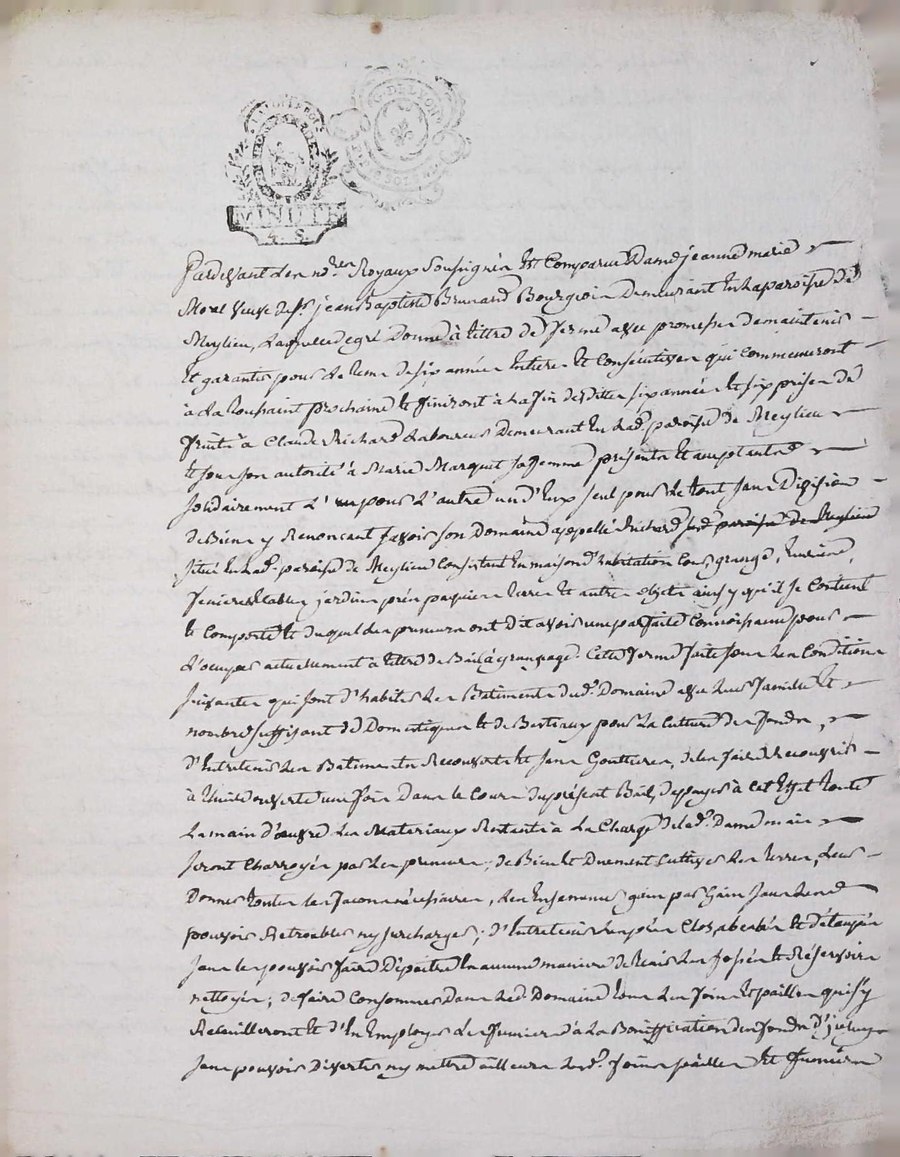 LA LOI ET LE ROI
G. DE LYON
MINUTE
4. S.
Pardevant Les no.res Royaux Soussignés Est Comparue Dame jeanne marie
Morel Veuve de Sr. jean Baptiste Brunand Bourgeois Demeurant En La paroisse de
Meylieu, Laquelle de gré Donne à titre de ferme avec promesse de maintenir
Et garantir pour Le terme de six années Entieres Et Consécutives qui Commenceront
à La Toussaint prochaine Et finiront à La fin desdittes six années Et six prises de
fruits à Claude Richard Laboureur Demeurant En Lad. paroisse de Meylieu
Et sous son autorité à Marie Marquet sa femme présents Et acceptants
solidairement L'un pour L'autre un d'Eux seul pour Le tout sans Division
de Biens y Renonçant savoir son Domaine appellé Richard sud. paroisse de Meylieu
situé En Lad. paroisse de Meylieu Consistant En maison d'habitation Cour, grange,
fenieres Etables jardins prés paquiers terres Et autres objets ainsy qu'il se Contient
Et Comporte Et duquel Les preneurs ont Dit avoir une parfaite Connoissance pour
L'occuper actuellement à titre de Bail à grangeage. Cette ferme faite sous Les Conditions
suivantes qui sont d'habiter Les Batiments dud. Domaine avec Leur famille Et
nombre suffisant de Domestiques Et de Bestiaux pour La Culture des fonds,
d'Entretenir Les Batiments Recouverts Et sans Gouttieres, de Les faire Recouvrir
à thuile ouverte une fois Dans Le Cours du présent Bail, de payer à cet Effet toute
La main d'œuvre Les Materiaux Restants à La Charge de Lad. Dame mais
seront Charroyés par Les preneurs; de Bien Et Duement Cultiver Les terres, Leur
Donner toutes Les façons nécéssaires, Les Ensemencer grain par grain sans Les
pouvoir Retroubler ny surcharger; d'Entretenir Les prés Clos, abenbés Et détaupés
sans Les pouvoir faire Dépaitre En aucune maniere de tenir Les fossés Et Réservoirs
nettoyés; de faire Consommer Dans Led. Domaine tous Les foins Et pailles qui s'y
Recueilleront Et d'En Employer Les fumiers à La Bonification des fonds d'iceluy
sans pouvoir Divertir ny mettre ailleurs Lesd. foins pailles Et fumiers